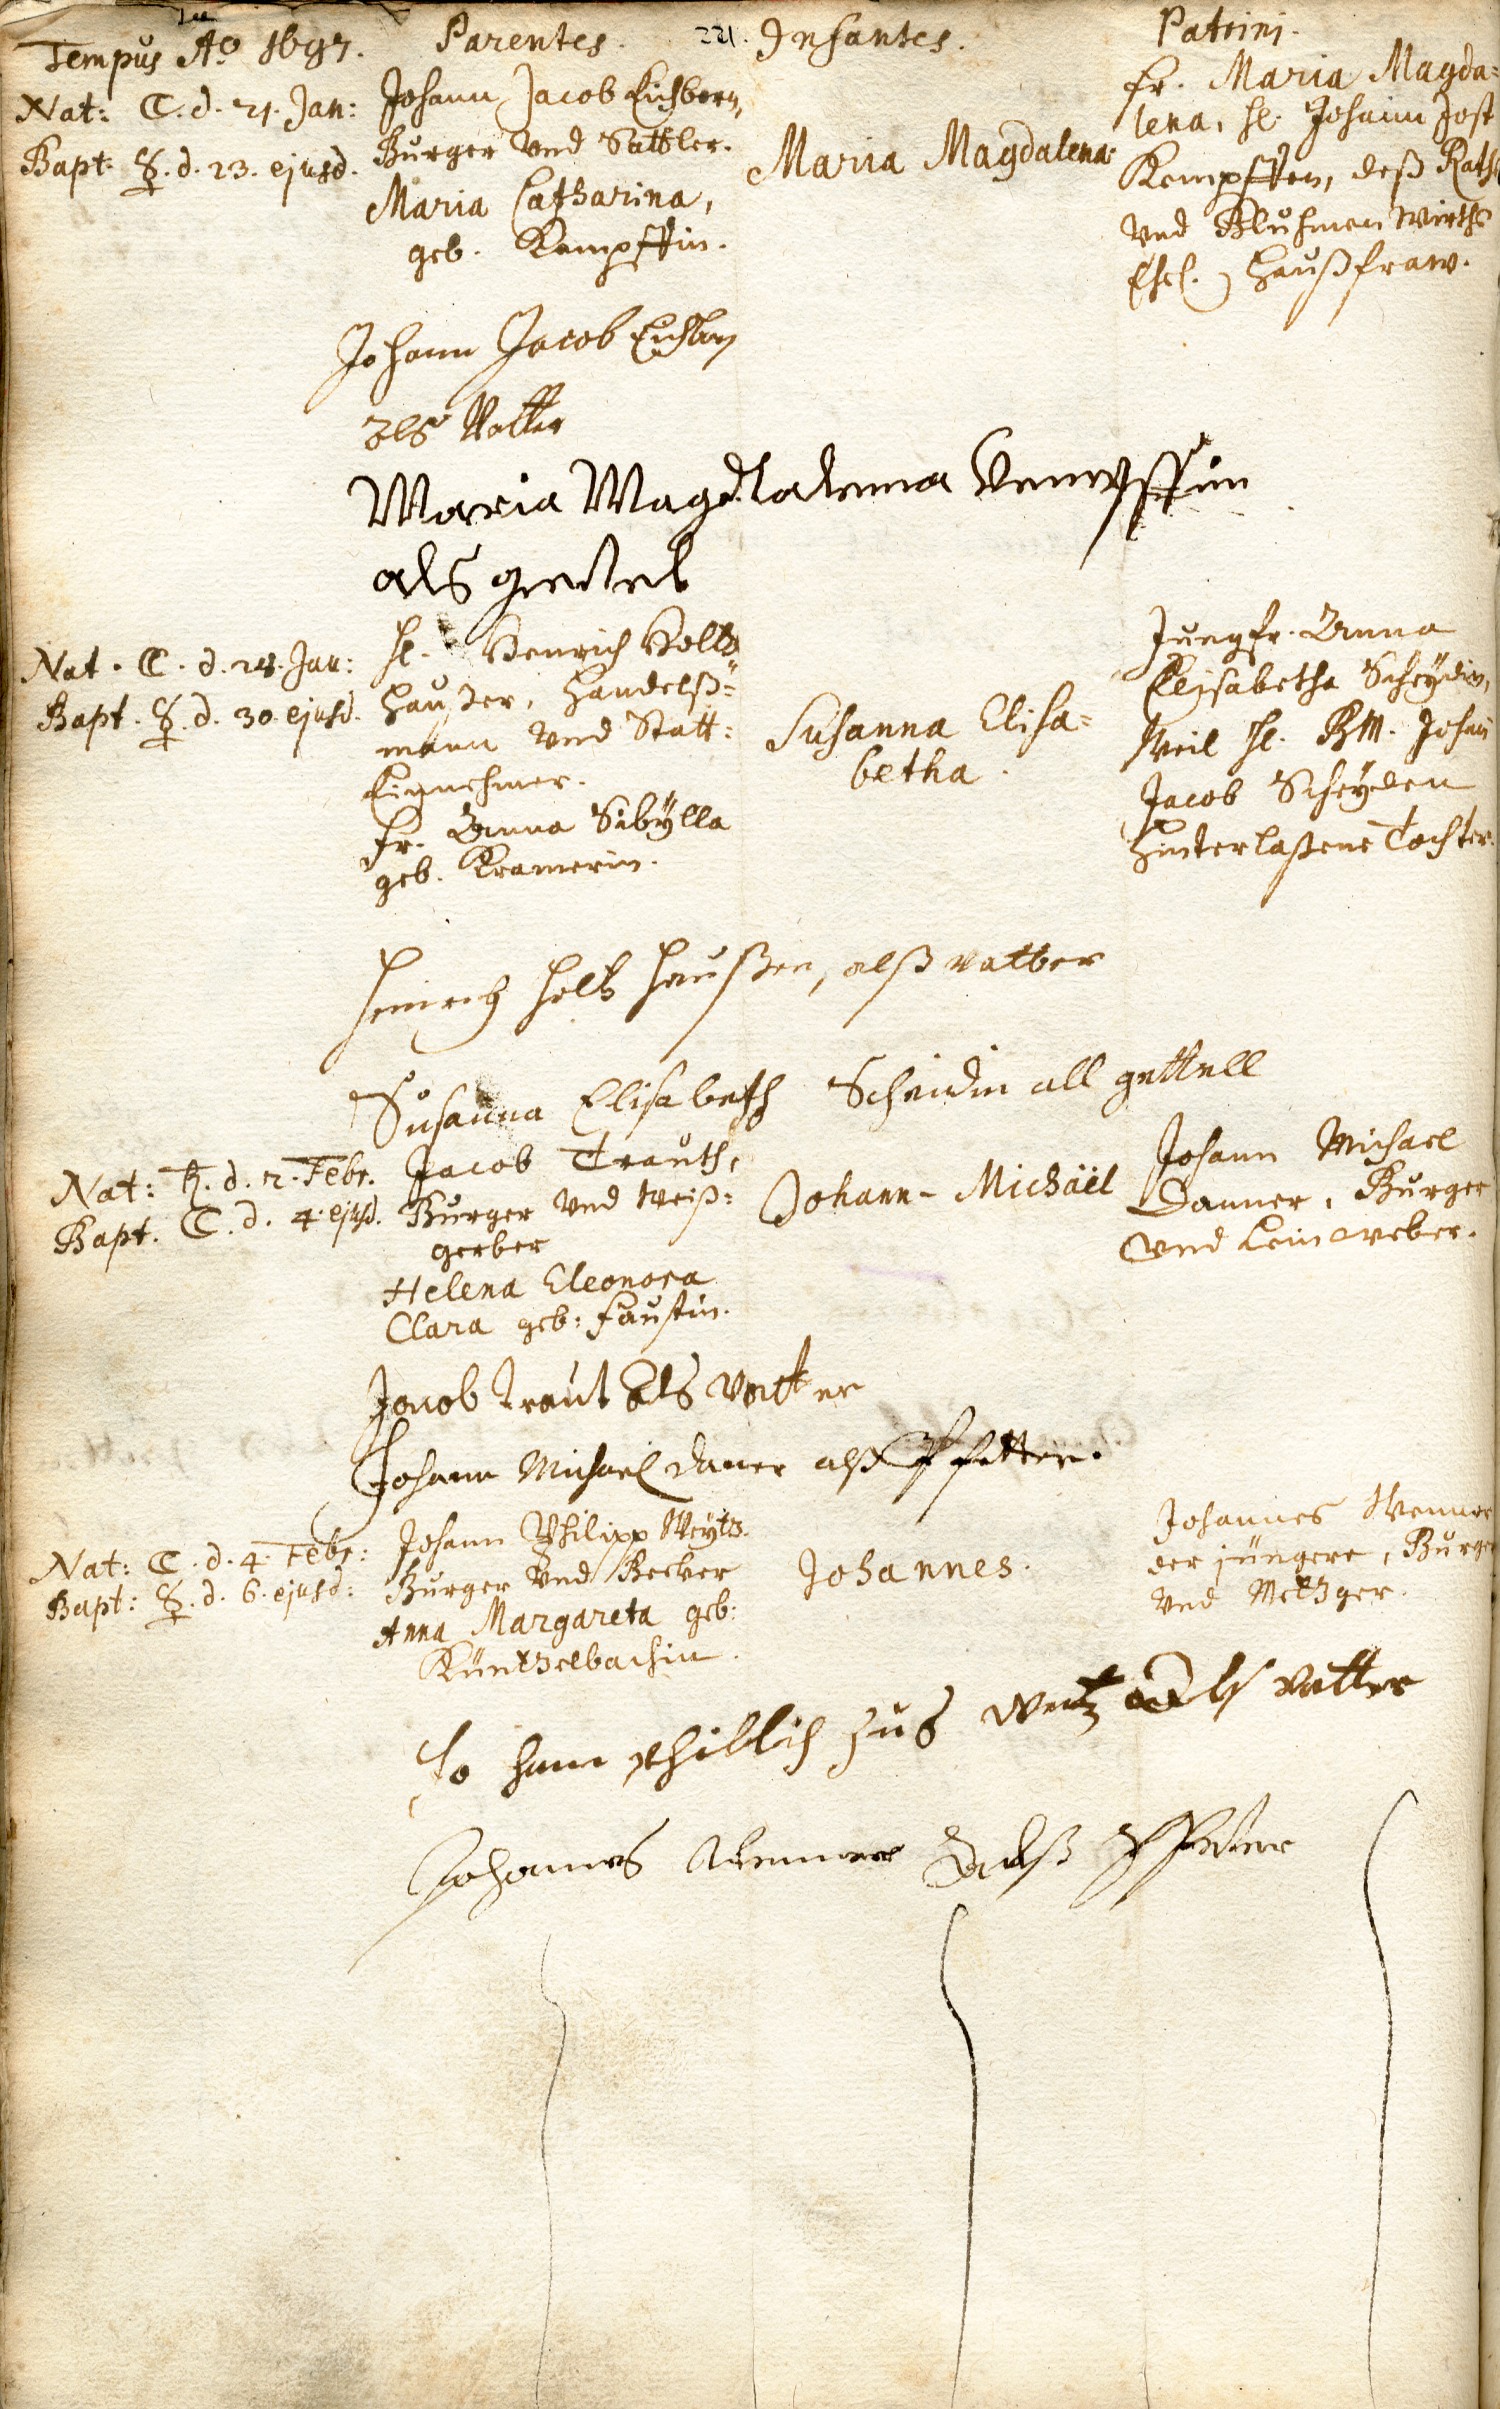 Tempus Aō 1697.
Parentes.
221.
Infantes.
Patrini.
Nat: ☾. d. 21. Jan:
Bapt: ☿. d. 23. ejusd.
Johann Jacob Eichborn,
Burger und Sattler.
Maria Catharina,
geb. Kempffin.
Maria Magdalena.
Fr. Maria Magda=
lena, H. Johann Jost
Kempffen, deß Raths
und Bluhmen Wirths
Ehel. Haußfraw.
Johann Jacob Eichborn
als Vatter
Maria Magdalenna Kempffin
als gettel
Nat. ☾. d. 28. Jan:
Bapt. ☿. d. 30. ejusd.
H. Henrich Holtz
haußer, Handelß=
mann und Statt=
Einnehmer.
Fr. Anna Sibÿlla
geb. Kramerin.
Susanna Elisa=
betha.
Jungfr. Anna
Elisabetha Scheÿdin,
Weil H. BM. Johan
Jacob Scheÿden
hinterlaßene Tochter.
Henrich Holtz Haußen, alß vatter
Susanna Elisabeth Scheidin all gettell
Nat: ♄. d. 2. Febr.
Bapt. ☾. d. 4. ejusd.
Jacob Trauth,
Burger und Weiß=
gerber
Helena Eleonora
Clara geb: Faustin.
Johann-Michaël
Johann Michael
Danner, Burger
und Leinweber.
Jacob Traut als Vatter
Johann Michael daner alß Pfetter.
Nat: ☾. d. 4. Febr:
Bapt: ☿. d. 6. ejusd:
Johann Philipp Weÿtz.
Burger und Becker
Anna Margareta geb:
Küntzelbachin.
Johannes.
Johannes Wenner
der jüngere, Burger
und Metzger.
Jo hann phillich Weitz als vatter
Johannes Wenner alß Pfetter